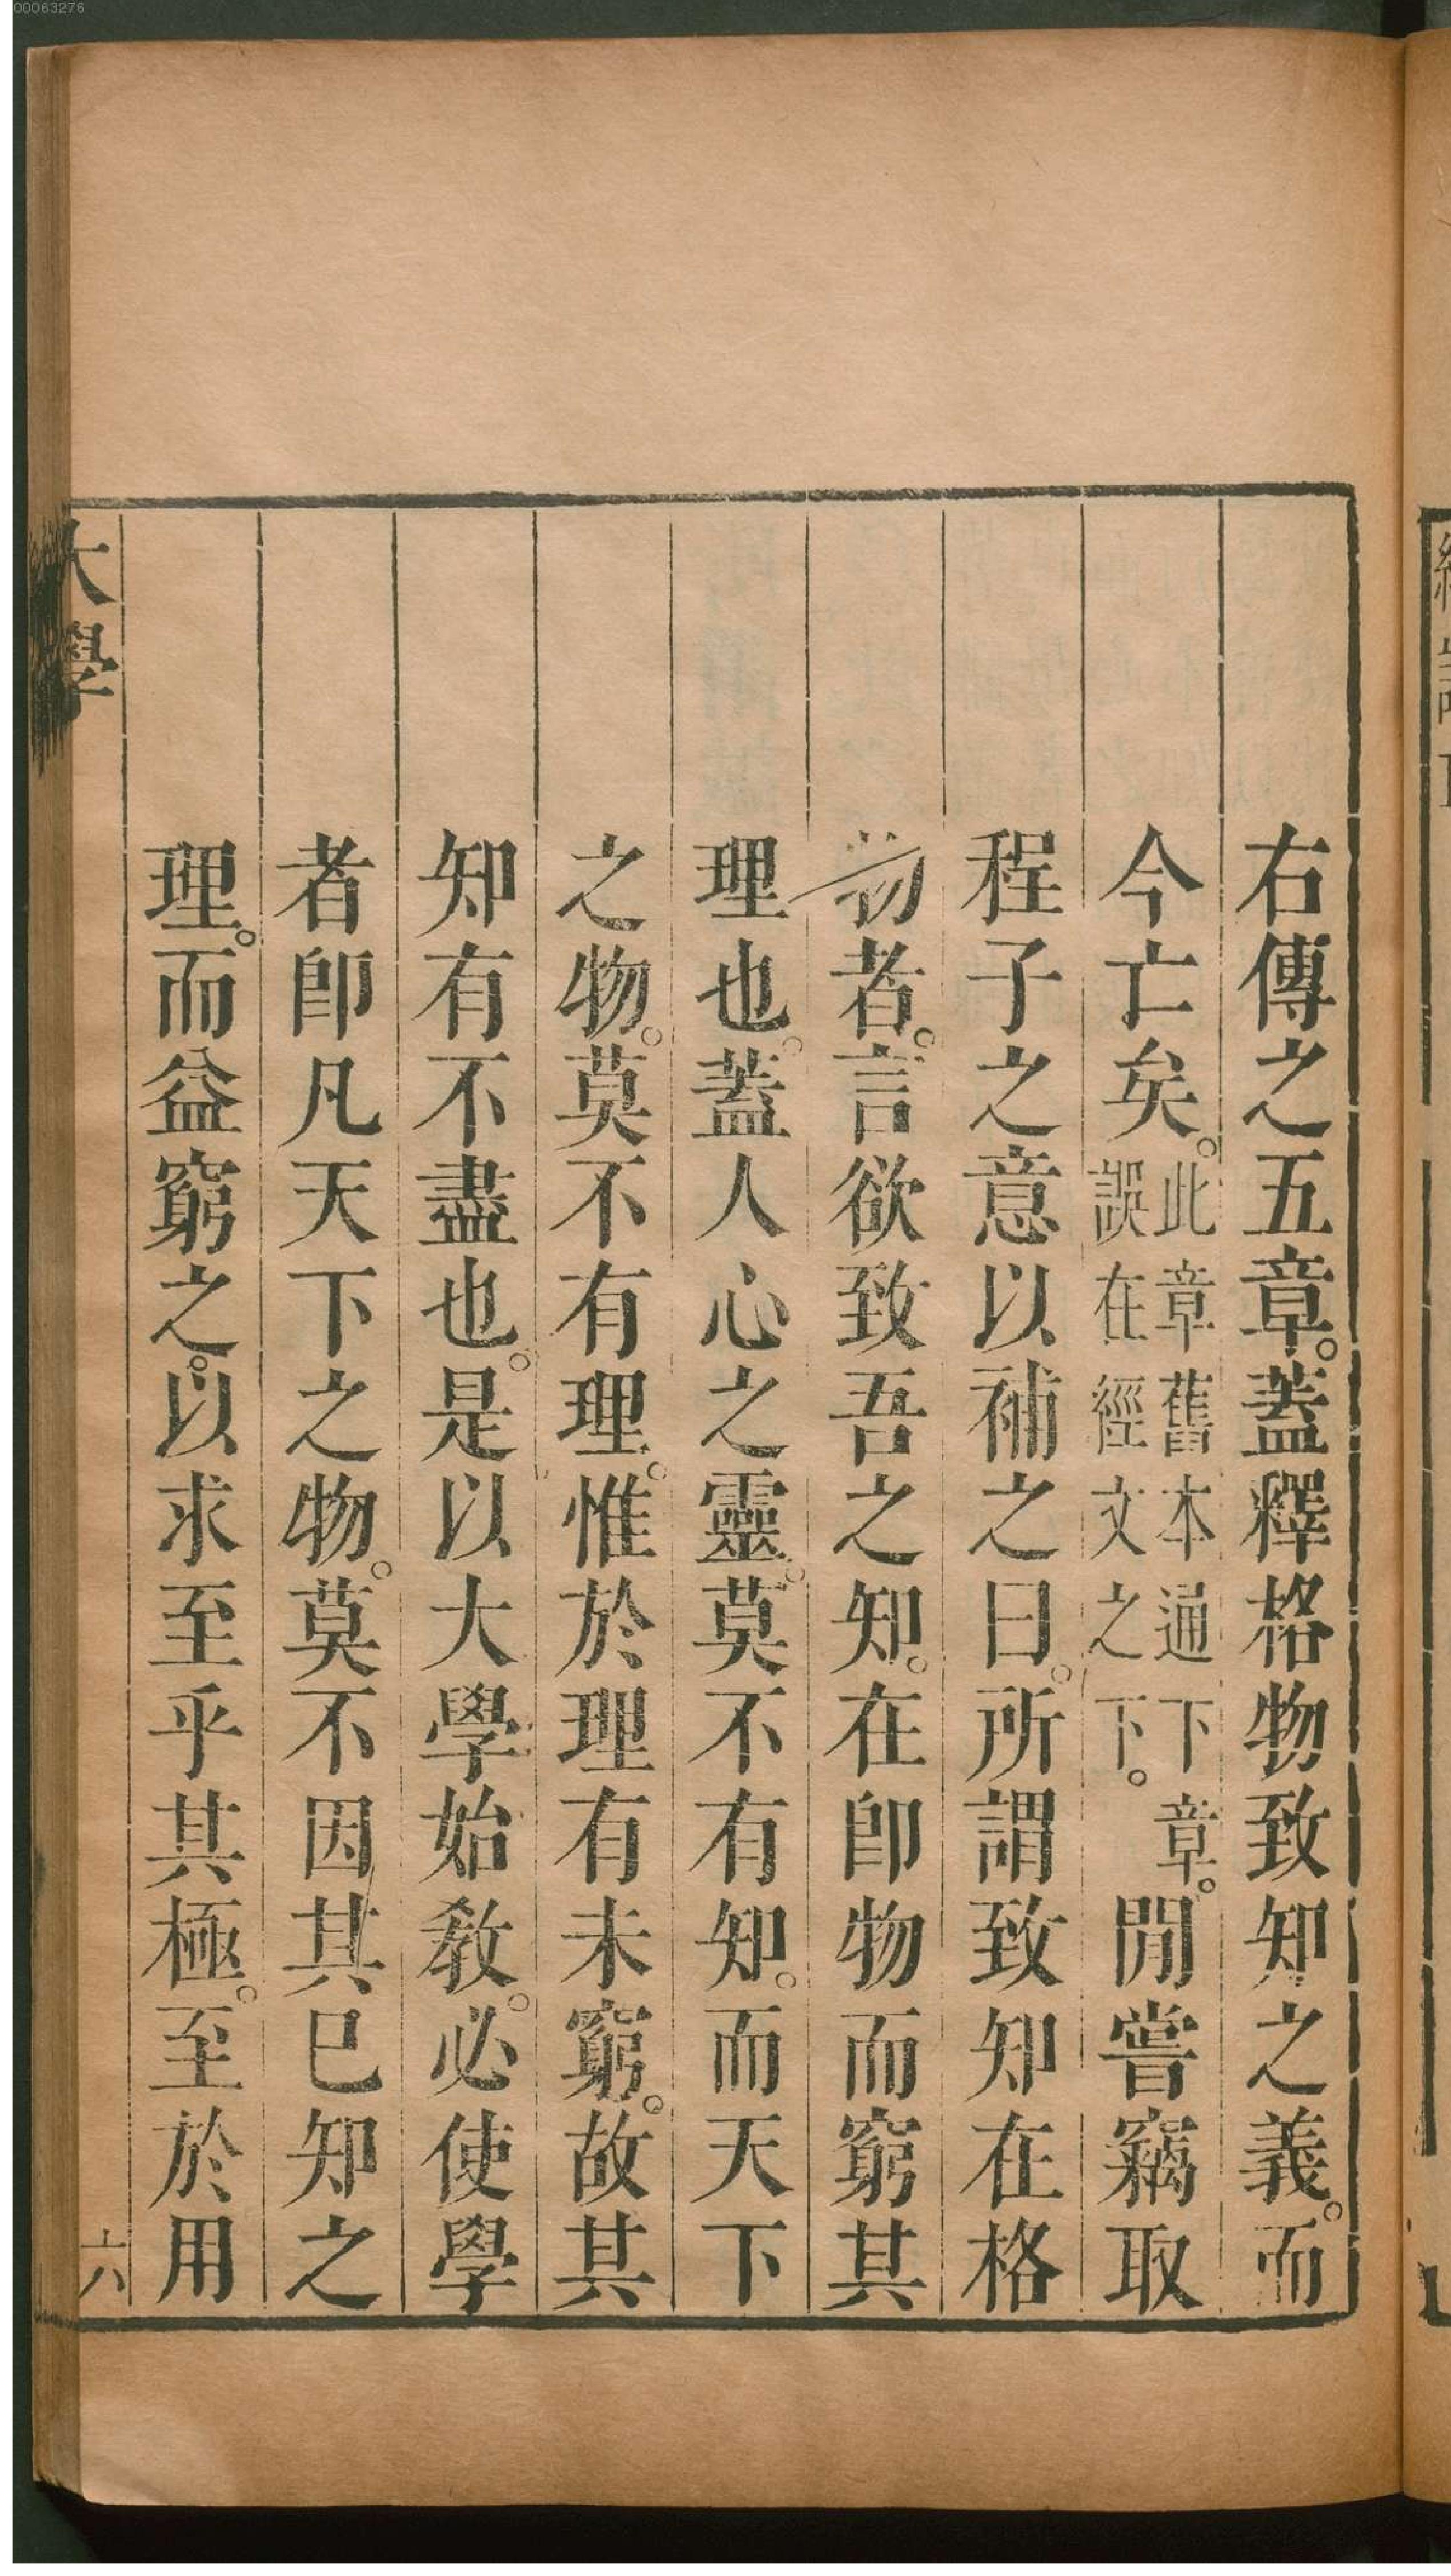 00063276
右傳之五章。蓋釋格物致知之義。而
今亡矣。此章舊本通下章。誤在經文之下。閒嘗竊取
程子之意以補之曰。所謂致知在格
物者。言欲致吾之知。在卽物而窮其
理也。蓋人心之靈。莫不有知。而天下
之物。莫不有理。惟於理有未窮。故其
知有不盡也。是以大學始敎。必使學
者卽凡天下之物。莫不因其已知之
理。而益窮之。以求至乎其極。至於用
大學
六